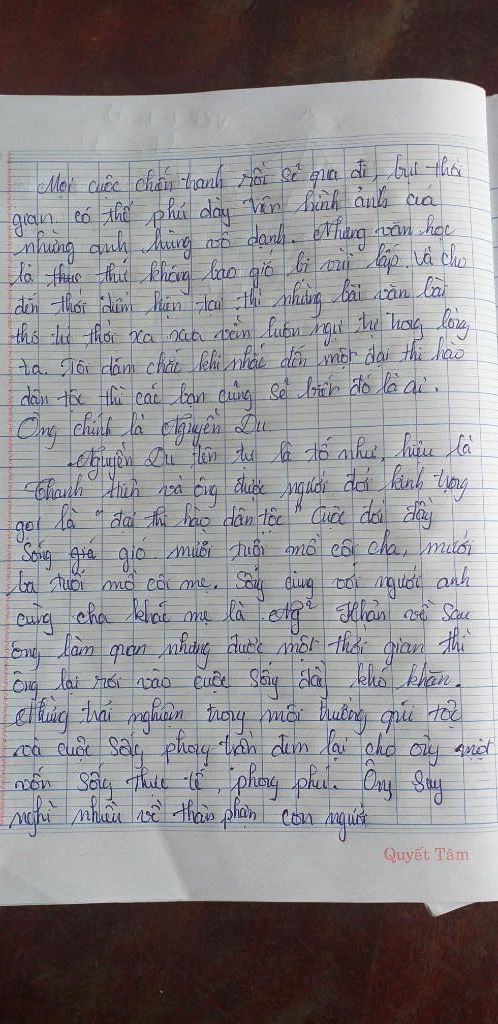 Mọi cuộc chiến tranh rồi sẽ qua đi, bụi thời
gian có thể phủ dày lên hình ảnh của
những anh hùng vô danh. Nhưng văn học
là thực thứ không bao giờ bị vùi lấp. Và cho
đến thời điểm hiện tại thì những bài văn bài
thơ từ thời xa xưa vẫn luôn ngự trị trong lòng
ta. Tôi dám chắc khi nhắc đến một đại thi hào
dân tộc thì các bạn cũng sẽ biết đó là ai.
Ông chính là Nguyễn Du.
Nguyễn Du tên tự là tố như, hiệu là
Thanh Hiên và ông được người đời kính trọng
gọi là "đại thi hào dân tộc" Cuộc đời đầy
Sống giá gió. mười tuổi mồ côi cha, mười
ba tuổi mồ côi mẹ. Sống cùng với người anh
cùng cha khác mẹ là Ng~ Khản về sau
ông làm quan nhưng được một thời gian thì
ông lại rơi vào cuộc sống đầy khó khăn.
Những trải nghiệm trong môi trường quí tộc
và cuộc sống phong trần đem lại cho ông một
vốn sống thực tế, phong phú. Ông suy
nghĩ nhiều về thân phận con người
Quyết Tâm